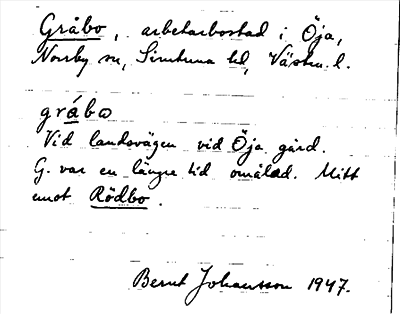 Gråbo, arbetarbostad i Öja,
Norrby sn, Simtuna hd, Västm. l.
gråbω
Vid landsvägen vid Öja gård.
G. var en längre tid omålad. Mitt
emot Rödbo.
Bernt Johansson 1947.